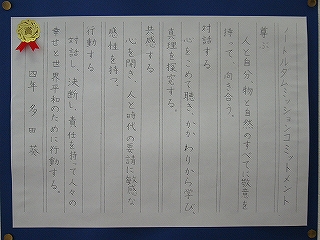 ノートルダムミッションコミットメント
尊ぶ
人と自分、物と自然のすべてに敬意を
持って、向き合う。
対話する
心をこめて聴き、かかわりから学び、
真理を探究する。
共感する
心を開き、人と時代の要請に敏感な
感性を持つ。
行動する
対話し、決断し、責任を持って人々の
幸せと世界平和のために行動する。
四年 多田葵
賞